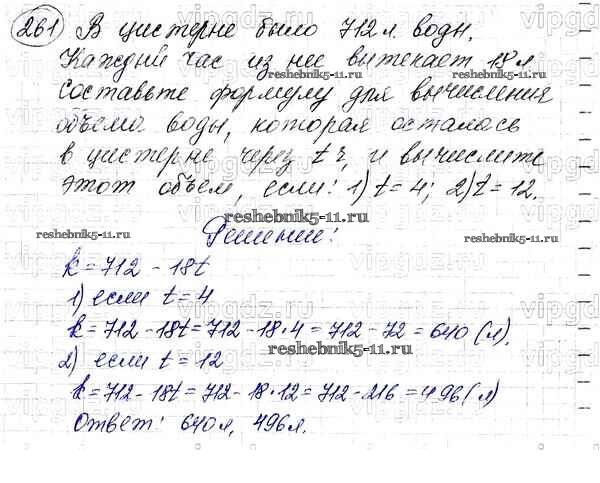 261 В цистерне было 712 л воды.
Каждый час из нее вытекает 18 л
reshebnik5-11.ru
reshebnik5-11.ru
Составьте формулу для вычисления
объема воды, которая осталась
в цистерне через t ч, и вычислите
этот объем, если: 1) t = 4; 2) t = 12.
reshebnik5-11.ru
Решение:
reshebnik5-11.ru
reshebnik5-11.ru
k = 712 - 18t
1) если t = 4
k = 712 - 18t = 712 - 18·4 = 712 - 72 = 640 (л).
reshebnik5-11.ru
2) если t = 12
k = 712 - 18t = 712 - 18·12 = 712 - 216 = 496 (л)
Ответ: 640 л, 496 л.